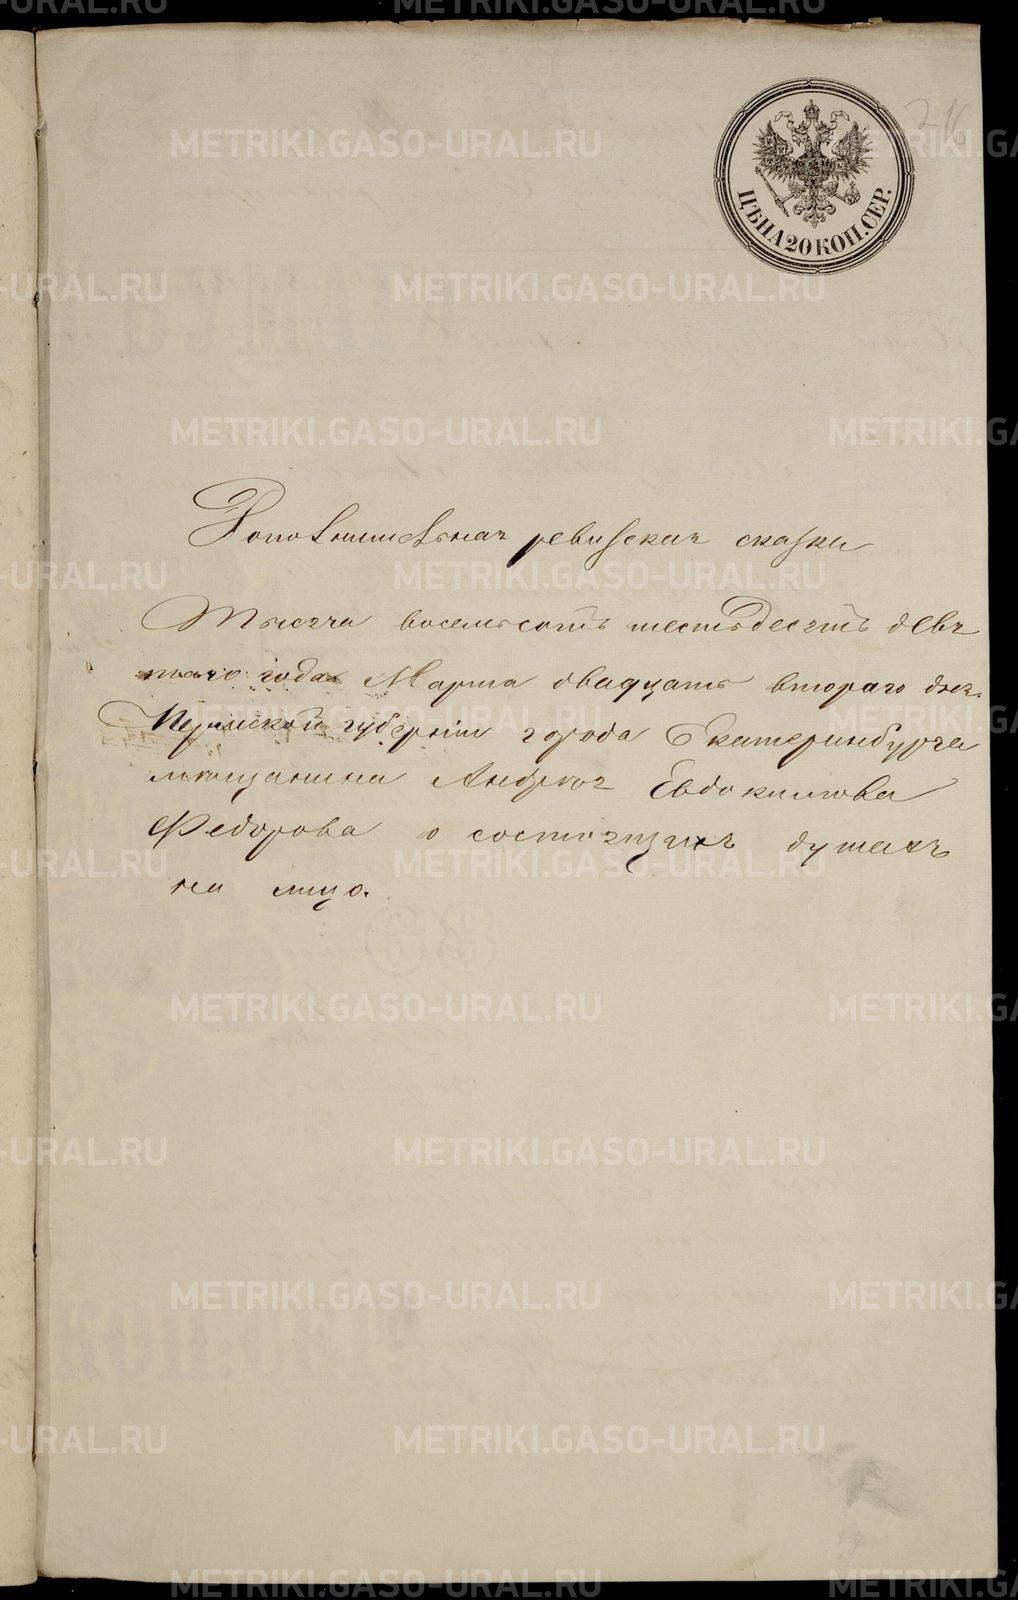 216
ЦѢНА 20 КОП. СЕР.
Дополнительная ревизская сказка
Тысяча восемьсотъ шестьдесятъ девя
таго года Марта двадцать втораго дня
Пермской губерніи города Екатеринбурга
мещанина Андрея Евдокимова
Федорова о состоящихъ душахъ
на лицо.
METRIKI.GASO-URAL.RU